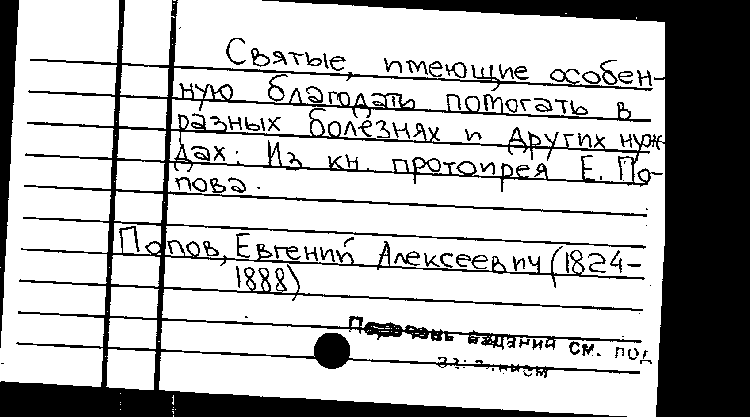 Святые, имеющие особен-
ную благодать помогать в
разных болезнях и других нуж-
дах: Из кн. протоирея Е. По-
пова.
Попов, Евгений Алексеевич (1824-
1888)
Перечень изданий см. под
заглавием